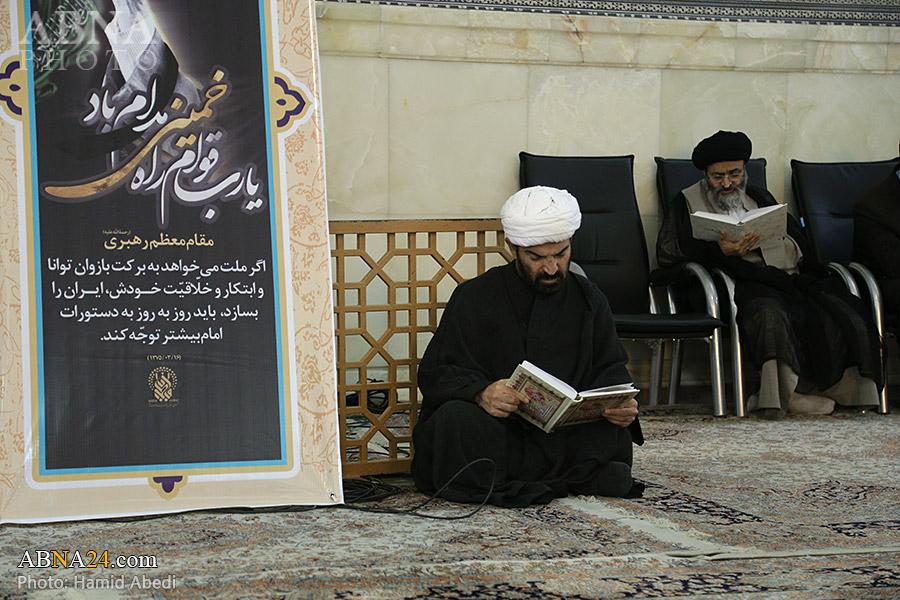 ABNA
PHOTO
یارب قوام راه
خمینی مدام باد
مقام معظم رهبری
اگر ملت می‌خواهد به برکت بازوان توانا
و ابتکار و خلاقیّت خودش، ایران را
بسازد، باید روز به روز به دستورات
امام بیشتر توجّه کند.
(۱۳۷۵/۰۳/۱۶)
ABNA24.com
Photo: Hamid Abedi